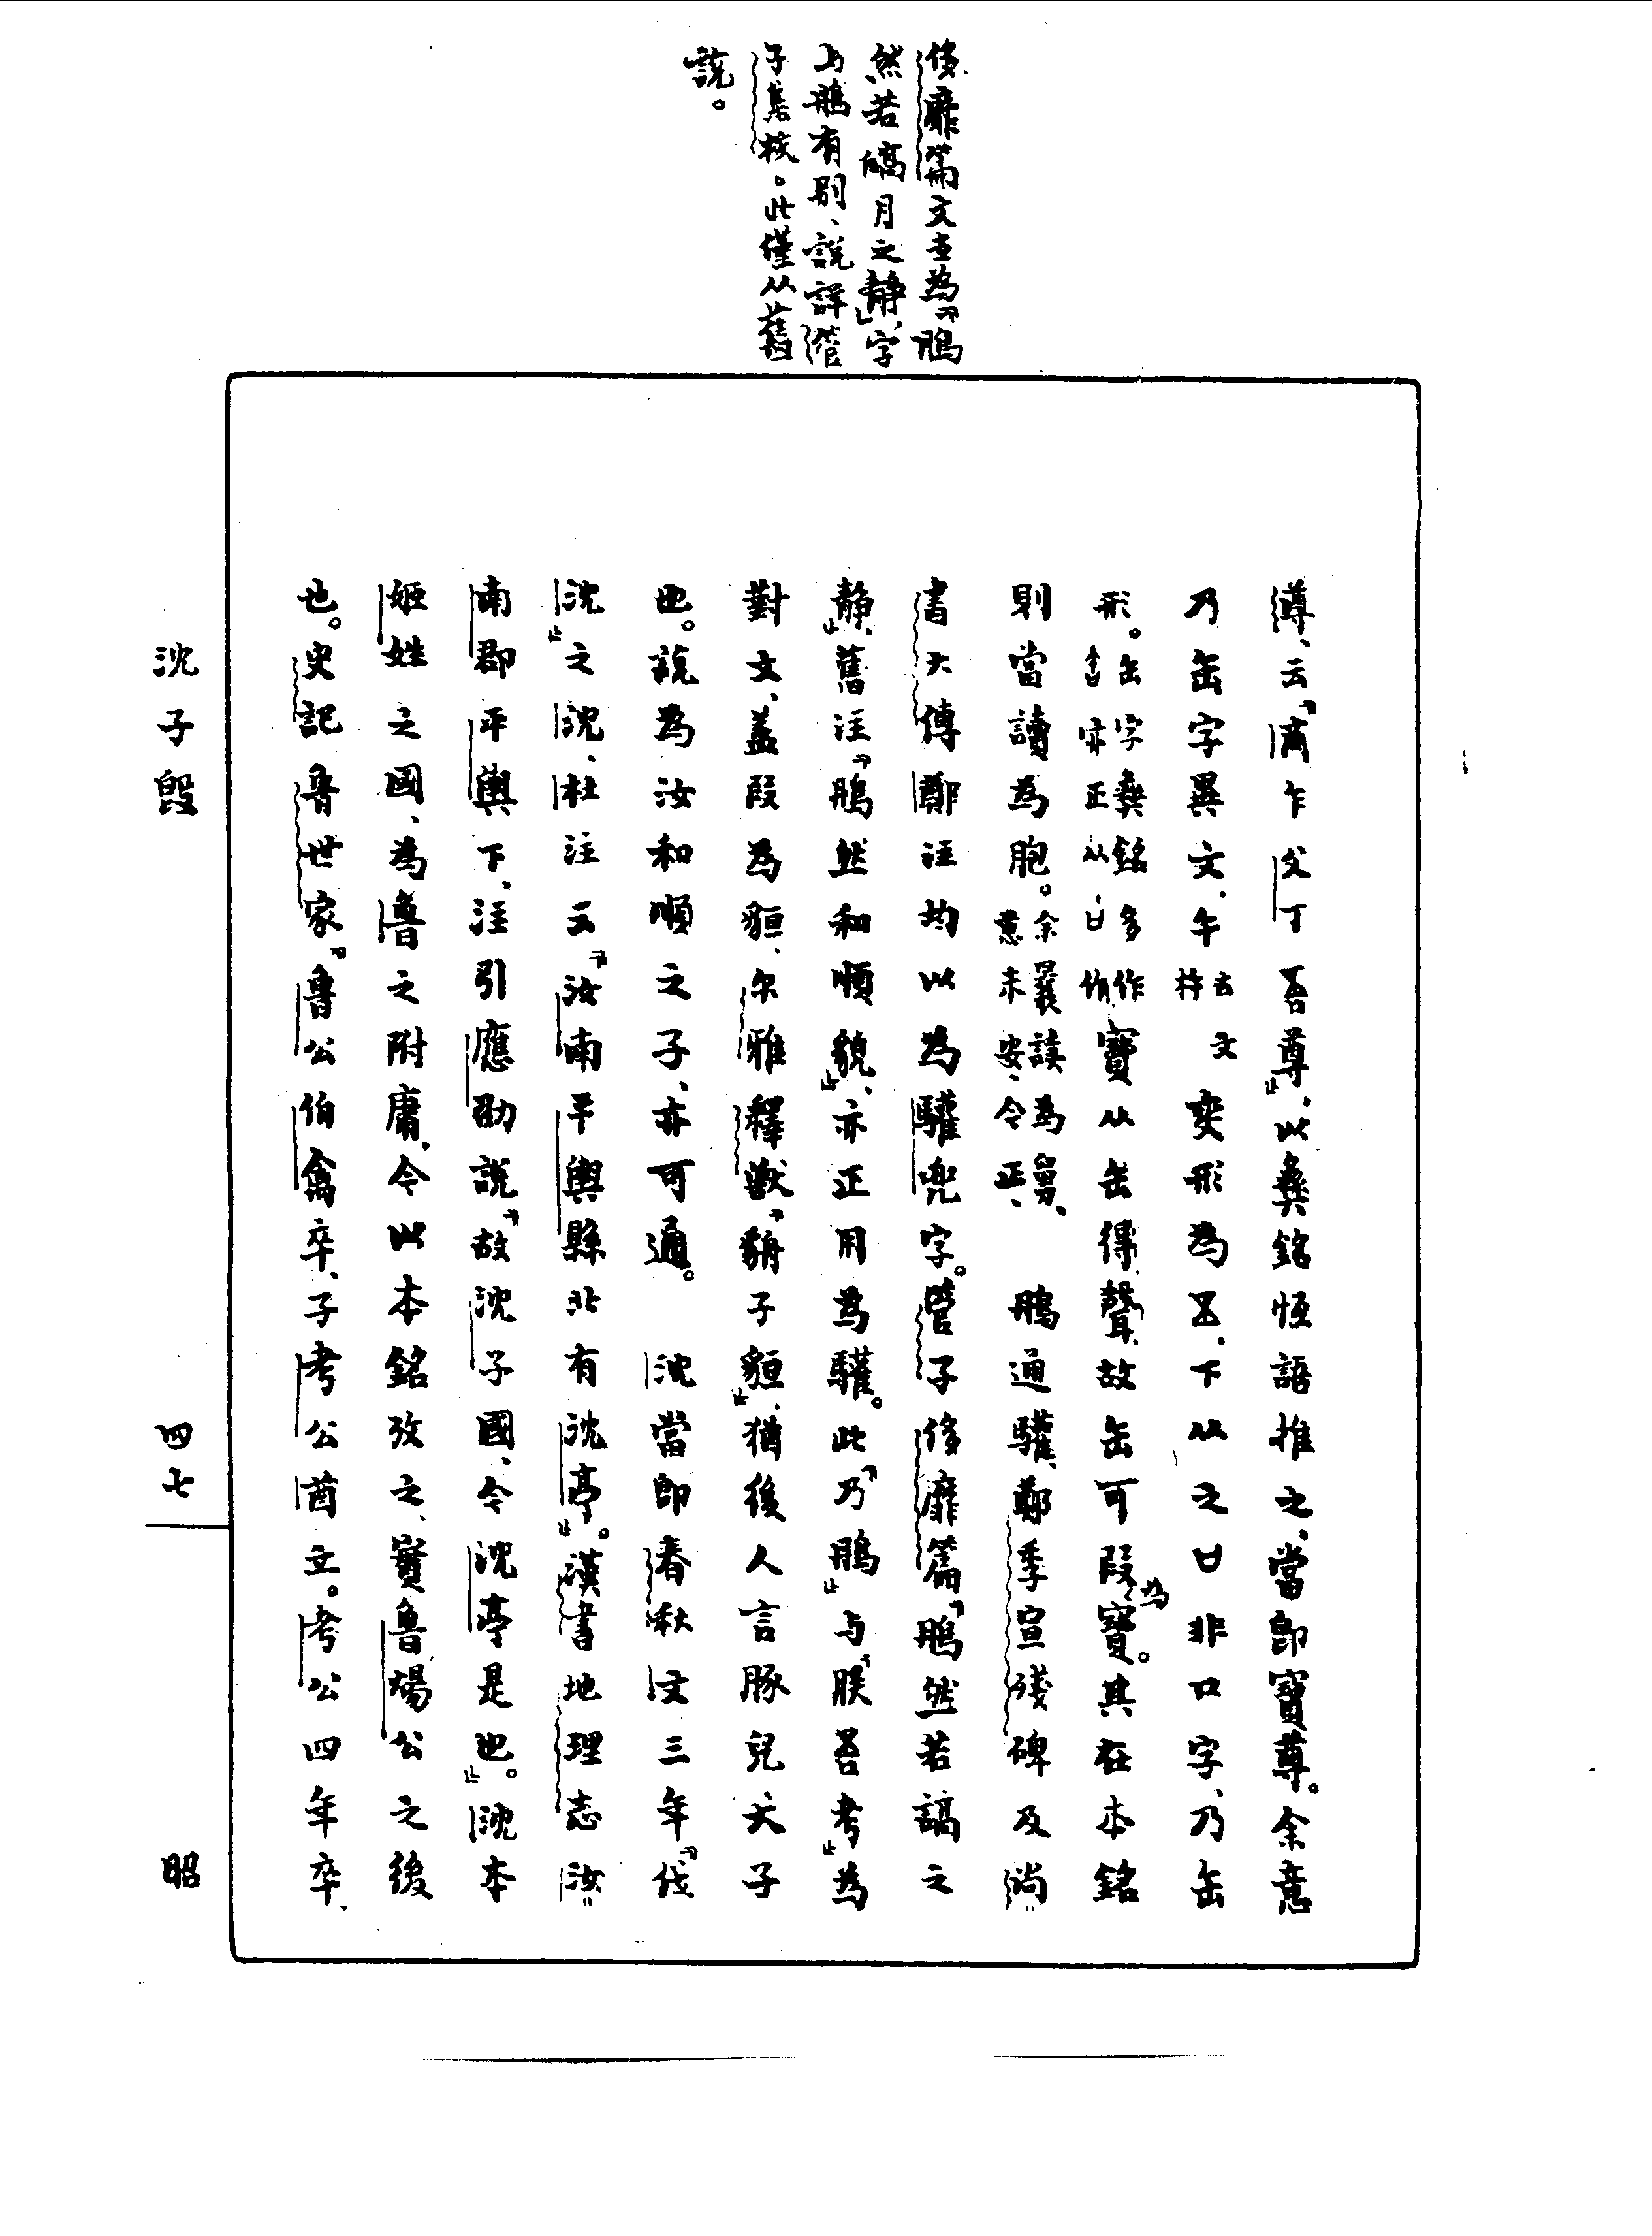 侈靡篇文查為「鵑
然若皜月之静」字
与鵑有别、説詳管
子集校。此僅从舊
説。
䔿、云「𠭯乍父丁𠮷尊」、以彝銘恒語推之、當即寶尊。余意
乃缶字異文、午 古文杵 奕形為𠮷、下从之口非口字、乃缶
形。缶字彝銘多作𠙽亦正从凵作 寶从缶得聲、故缶可叚為寶。其在本銘
則當讀為胞。余曩讀為舅、意未安、今正、 鵑通驩、鄭季宣殘碑及尚=
書大傳鄭注均以為驩兜字。管子侈靡篇「鵑然若謞之
静」、舊注「鵑然和順貌」、亦正用為驩。此「乃鵑」与「朕吾考」為
對文、蓋叚為貆、尔雅釋獸「貈子貆」、猶後人言豚兒犬子
也。説為汝和順之子、亦可通。 沈當即春秋文三年「伐
沈」之沈、杜注云「汝南平輿縣北有沈亭」。漢書地理志汝=
南郡平輿下、注引應劭説「故沈子國、今沈亭是也。」沈本
姬姓之國、為魯之附庸、今以本銘攷之、實魯煬公之後
也。史記魯世家「魯公伯禽卒、子考公酋立。考公四年卒、
沈子𣪘
四七
昭